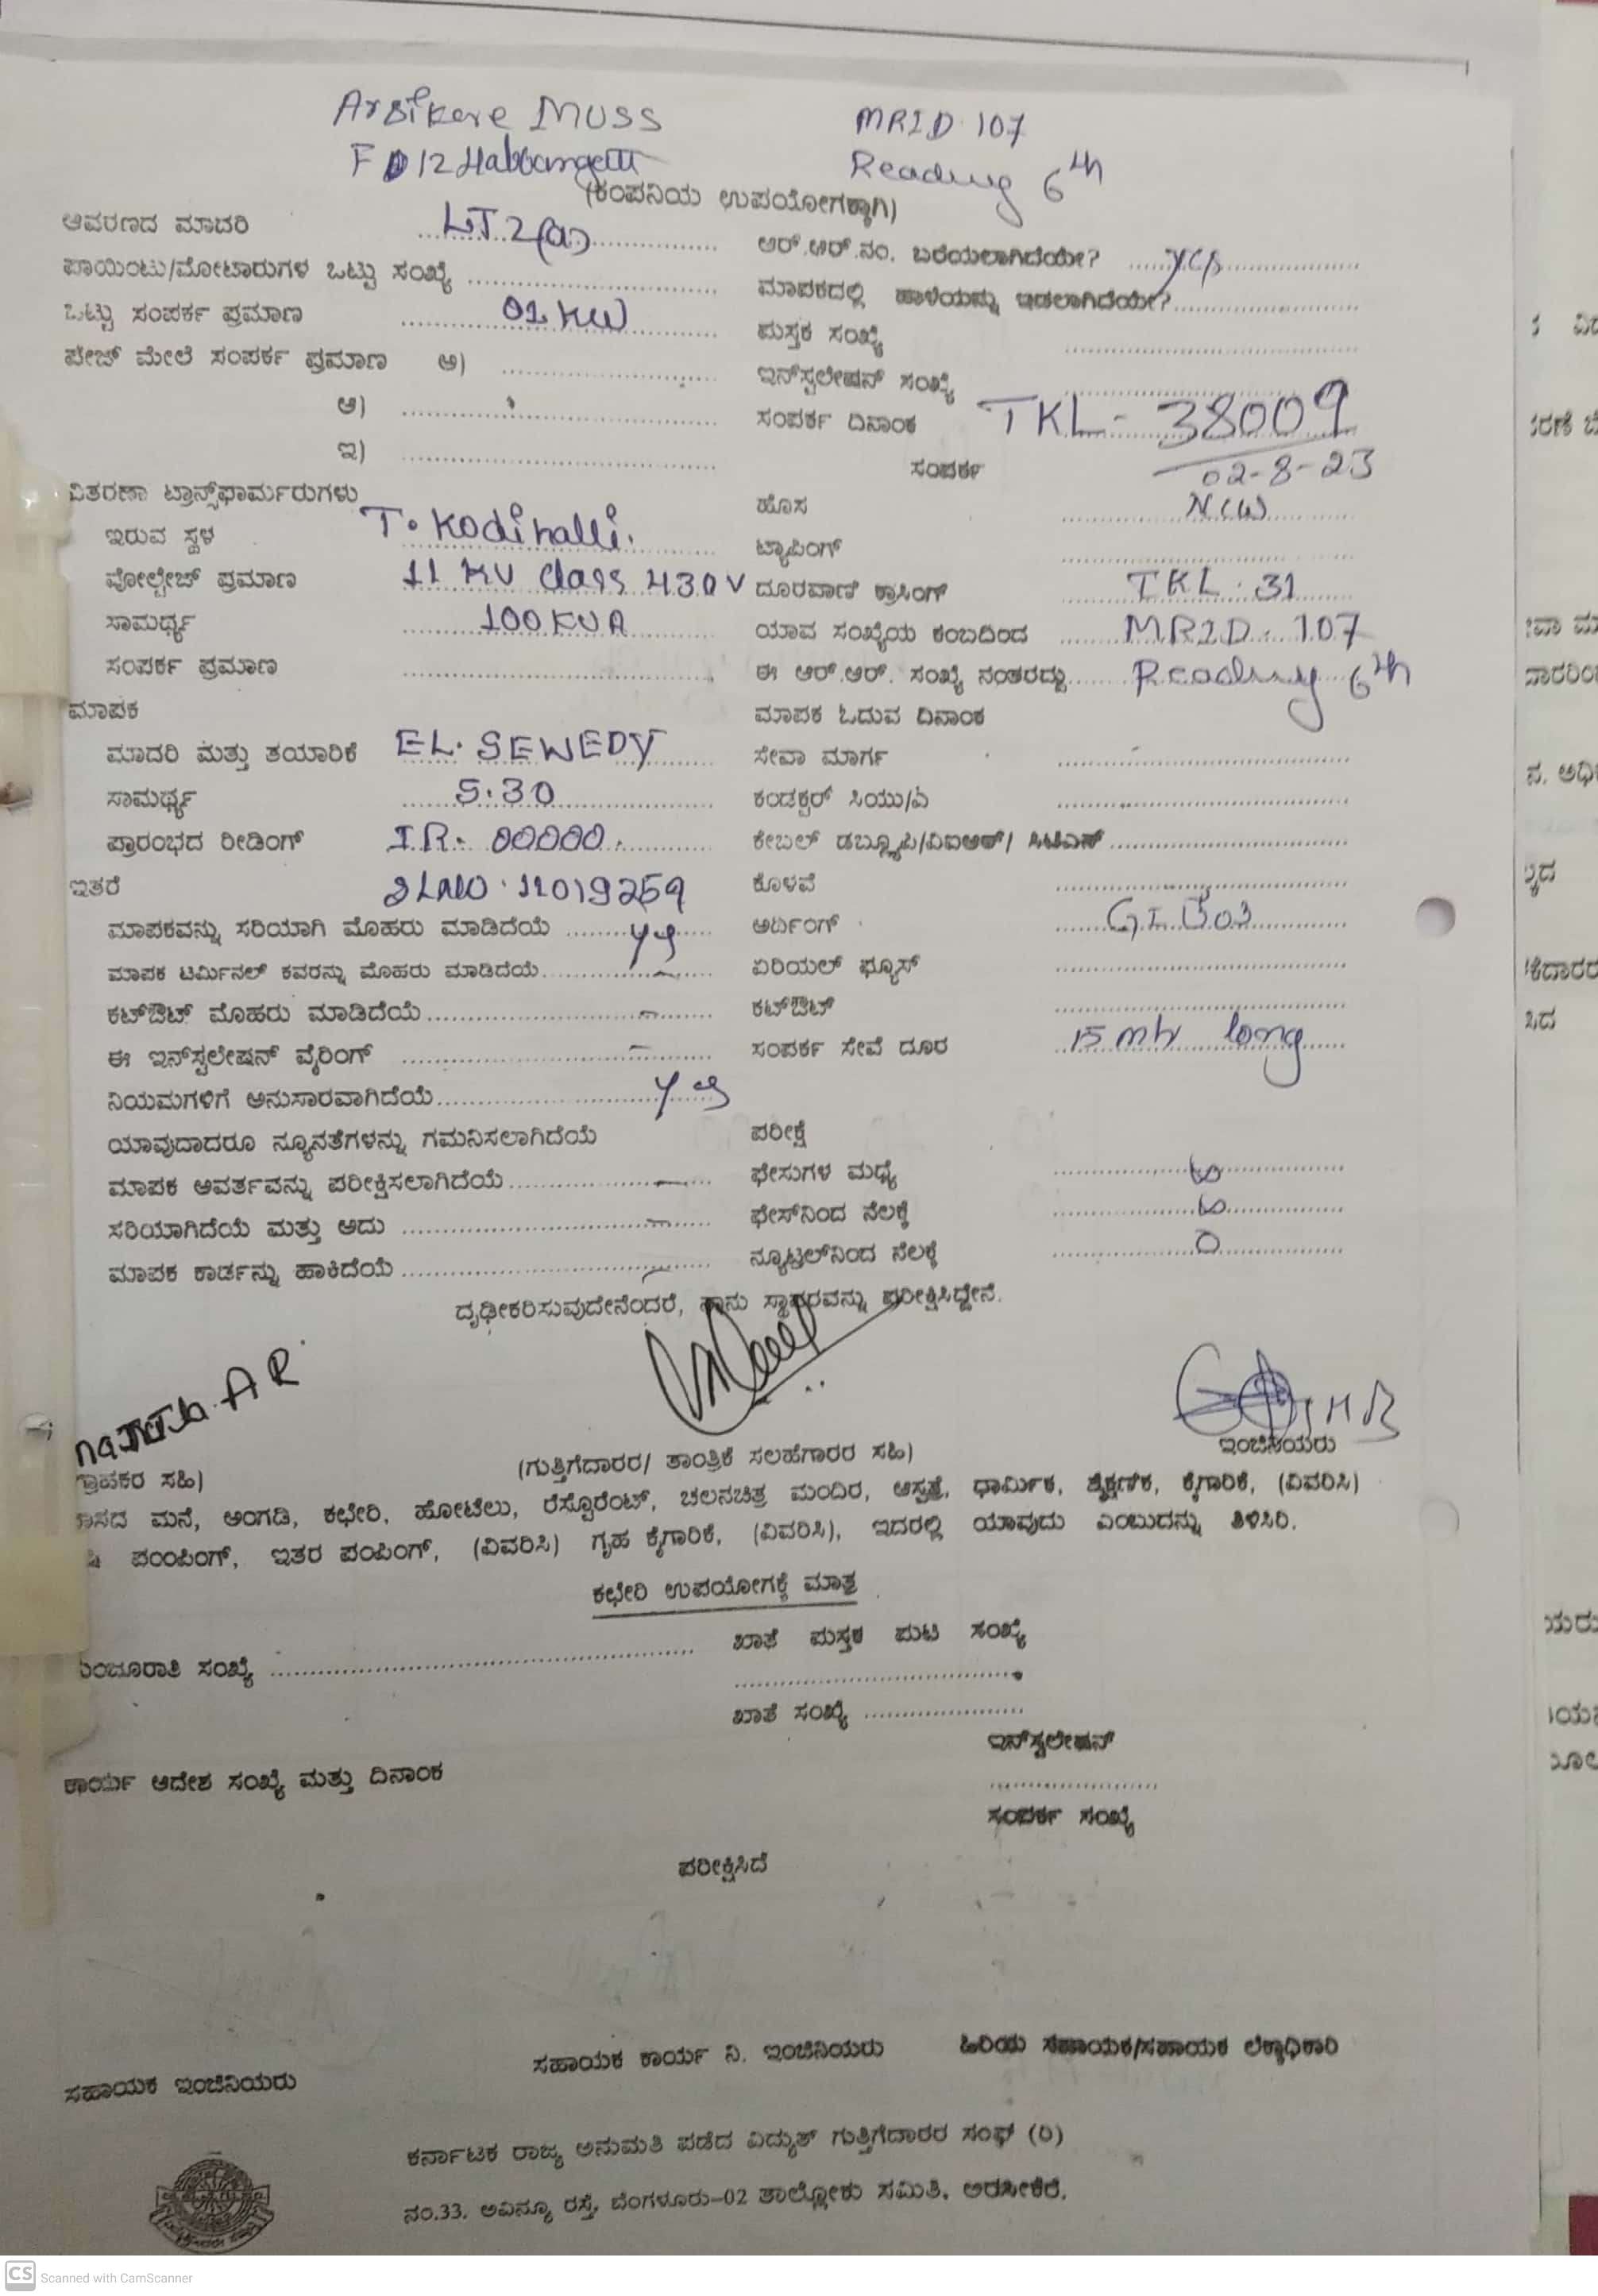 Arsikere MUSS MRID 107
F 12 Reading 6th
(ಕಂಪನಿಯ ಉಪಯೋಗಕ್ಕಾಗಿ)
ಆವರಣದ ಮಾದರಿ LT 2(a) ಆರ್.ಆರ್.ನಂ. ಬರೆಯಲಾಗಿದೆಯೇ? yes
ಪಾಯಿಂಟು/ಮೋಟಾರುಗಳ ಒಟ್ಟು ಸಂಖ್ಯೆ ಮಾಪಕದಲ್ಲಿ ಹಾಳೆಯನ್ನು ಇಡಲಾಗಿದೆಯೇ?
ಒಟ್ಟು ಸಂಪರ್ಕ ಪ್ರಮಾಣ 01 KW ಪುಸ್ತಕ ಸಂಖ್ಯೆ
ಪೇಜ್ ಮೇಲೆ ಸಂಪರ್ಕ ಪ್ರಮಾಣ ಅ) ಇನ್‌ಸ್ಟಲೇಷನ್ ಸಂಖ್ಯೆ
ಆ) ಸಂಪರ್ಕ ದಿನಾಂಕ TKL- 38009
ಇ) ಸಂಪರ್ಕ 02-8-23
ವಿತರಣಾ ಟ್ರಾನ್ಸ್‌ಫಾರ್ಮರುಗಳು ಹೊಸ New
ಇರುವ ಸ್ಥಳ T. Kodihalli. ಟ್ಯಾಪಿಂಗ್
ವೋಲ್ಟೇಜ್ ಪ್ರಮಾಣ 11 KV Class 430V ದೂರವಾಣಿ ಕ್ರಾಸಿಂಗ್ TKL. 31
ಸಾಮರ್ಥ್ಯ 100 KVA ಯಾವ ಸಂಖ್ಯೆಯ ಕಂಬದಿಂದ MRID. 107
ಸಂಪರ್ಕ ಪ್ರಮಾಣ ಈ ಆರ್.ಆರ್. ಸಂಖ್ಯೆ ನಂತರದ್ದು Reading 6th
ಮಾಪಕ ಮಾಪಕ ಓದುವ ದಿನಾಂಕ
ಮಾದರಿ ಮತ್ತು ತಯಾರಿಕೆ EL. SEWEDY ಸೇವಾ ಮಾರ್ಗ
ಸಾಮರ್ಥ್ಯ 5.30 ಕಂಡಕ್ಟರ್ ಸಿಯು/ಎ
ಪ್ರಾರಂಭದ ರೀಡಿಂಗ್ IR. 00000. ಕೇಬಲ್ ಡಬ್ಲ್ಯೂಪಿ/ವಿಐಆರ್/ ಸಿಟಿಎಸ್
ಇತರೆ SLNO. 11019259 ಕೊಳವೆ
ಮಾಪಕವನ್ನು ಸರಿಯಾಗಿ ಮೊಹರು ಮಾಡಿದೆಯೆ yes ಅರ್ಥಿಂಗ್
ಮಾಪಕ ಟರ್ಮಿನಲ್ ಕವರನ್ನು ಮೊಹರು ಮಾಡಿದೆಯೆ ಏರಿಯಲ್ ಫ್ಯೂಸ್
ಕಟ್‌ಔಟ್ ಮೊಹರು ಮಾಡಿದೆಯೆ ಕಟ್‌ಔಟ್
ಈ ಇನ್‌ಸ್ಟಲೇಷನ್ ವೈರಿಂಗ್ ಸಂಪರ್ಕ ಸೇವೆ ದೂರ 15 mtr long
ನಿಯಮಗಳಿಗೆ ಅನುಸಾರವಾಗಿದೆಯೆ yes
ಯಾವುದಾದರೂ ನ್ಯೂನತೆಗಳನ್ನು ಗಮನಿಸಲಾಗಿದೆಯೆ ಪರೀಕ್ಷೆ
ಮಾಪಕ ಆವರ್ತವನ್ನು ಪರೀಕ್ಷಿಸಲಾಗಿದೆಯೆ ಫೇಸುಗಳ ಮಧ್ಯೆ
ಸರಿಯಾಗಿದೆಯೆ ಮತ್ತು ಅದು ಫೇಸ್‌ನಿಂದ ನೆಲಕ್ಕೆ
ಮಾಪಕ ಕಾರ್ಡನ್ನು ಹಾಕಿದೆಯೆ ನ್ಯೂಟ್ರಲ್‌ನಿಂದ ನೆಲಕ್ಕೆ 0
ದೃಢೀಕರಿಸುವುದೇನೆಂದರೆ, ನಾನು ಸ್ಥಾವರವನ್ನು ಪರೀಕ್ಷಿಸಿದ್ದೇನೆ.
A R
ಇಂಜಿನಿಯರು
ಗ್ರಾಹಕರ ಸಹಿ) (ಗುತ್ತಿಗೆದಾರರ/ ತಾಂತ್ರಿಕ ಸಲಹೆಗಾರರ ಸಹಿ)
ವಾಸದ ಮನೆ, ಅಂಗಡಿ, ಕಛೇರಿ, ಹೋಟೆಲು, ರೆಸ್ಟೊರೆಂಟ್, ಚಲನಚಿತ್ರ ಮಂದಿರ, ಆಸ್ಪತ್ರೆ, ಧಾರ್ಮಿಕ, ಶೈಕ್ಷಣಿಕ, ಕೈಗಾರಿಕೆ, (ವಿವರಿಸಿ)
ಪಂಂಪಿಂಗ್, ಇತರ ಪಂಪಿಂಗ್, (ವಿವರಿಸಿ) ಗೃಹ ಕೈಗಾರಿಕೆ, (ವಿವರಿಸಿ), ಇದರಲ್ಲಿ ಯಾವುದು ಎಂಬುದನ್ನು ತಿಳಿಸಿರಿ.
ಕಛೇರಿ ಉಪಯೋಗಕ್ಕೆ ಮಾತ್ರ
ಮಂಜೂರಾತಿ ಸಂಖ್ಯೆ ಖಾತೆ ಪುಸ್ತಕ ಪುಟ ಸಂಖ್ಯೆ
ಖಾತೆ ಸಂಖ್ಯೆ
ಇನ್‌ಸ್ಟಲೇಷನ್
ಕಾರ್ಯ ಆದೇಶ ಸಂಖ್ಯೆ ಮತ್ತು ದಿನಾಂಕ
ಸಂಪರ್ಕ ಸಂಖ್ಯೆ
ಪರೀಕ್ಷಿಸಿದೆ
ಸಹಾಯಕ ಇಂಜಿನಿಯರು ಸಹಾಯಕ ಕಾರ್ಯ ನಿ. ಇಂಜಿನಿಯರು ಹಿರಿಯ ಸಹಾಯಕ/ಸಹಾಯಕ ಲೆಕ್ಕಾಧಿಕಾರಿ
ಕರ್ನಾಟಕ ರಾಜ್ಯ ಅನುಮತಿ ಪಡೆದ ವಿದ್ಯುತ್ ಗುತ್ತಿಗೆದಾರರ ಸಂಘ (ರಿ)
ನಂ.33, ಅವಿನ್ಯೂ ರಸ್ತೆ, ಬೆಂಗಳೂರು-02 ತಾಲ್ಲೋಕು ಸಮಿತಿ, ಅರಸೀಕೆರೆ.
CS Scanned with CamScanner